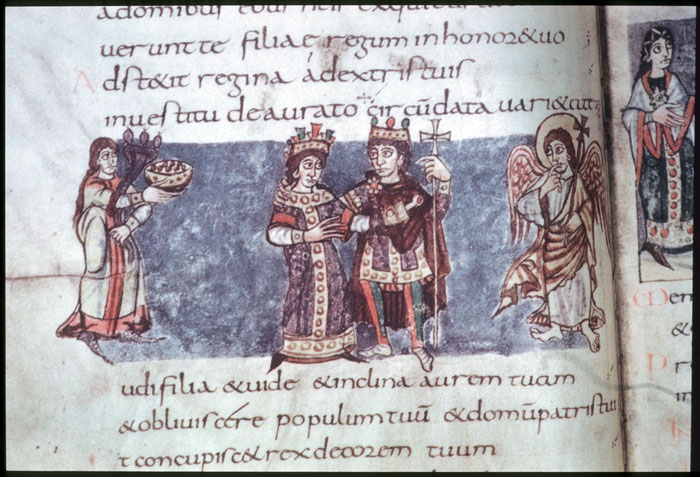 adomibus
uerunt te filiae regum in honor&uo
Adst&it regina adextris tuis
in uestitu deaurato circūdata uari&
udi filia &uide &inclina aurem tuam
&obliuiscere populum tuū &domū patris tui
t concupisc& rex decorem tuum